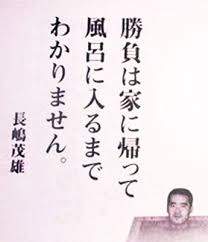 勝負は家に帰って
風呂に入るまで
わかりません。
長嶋茂雄